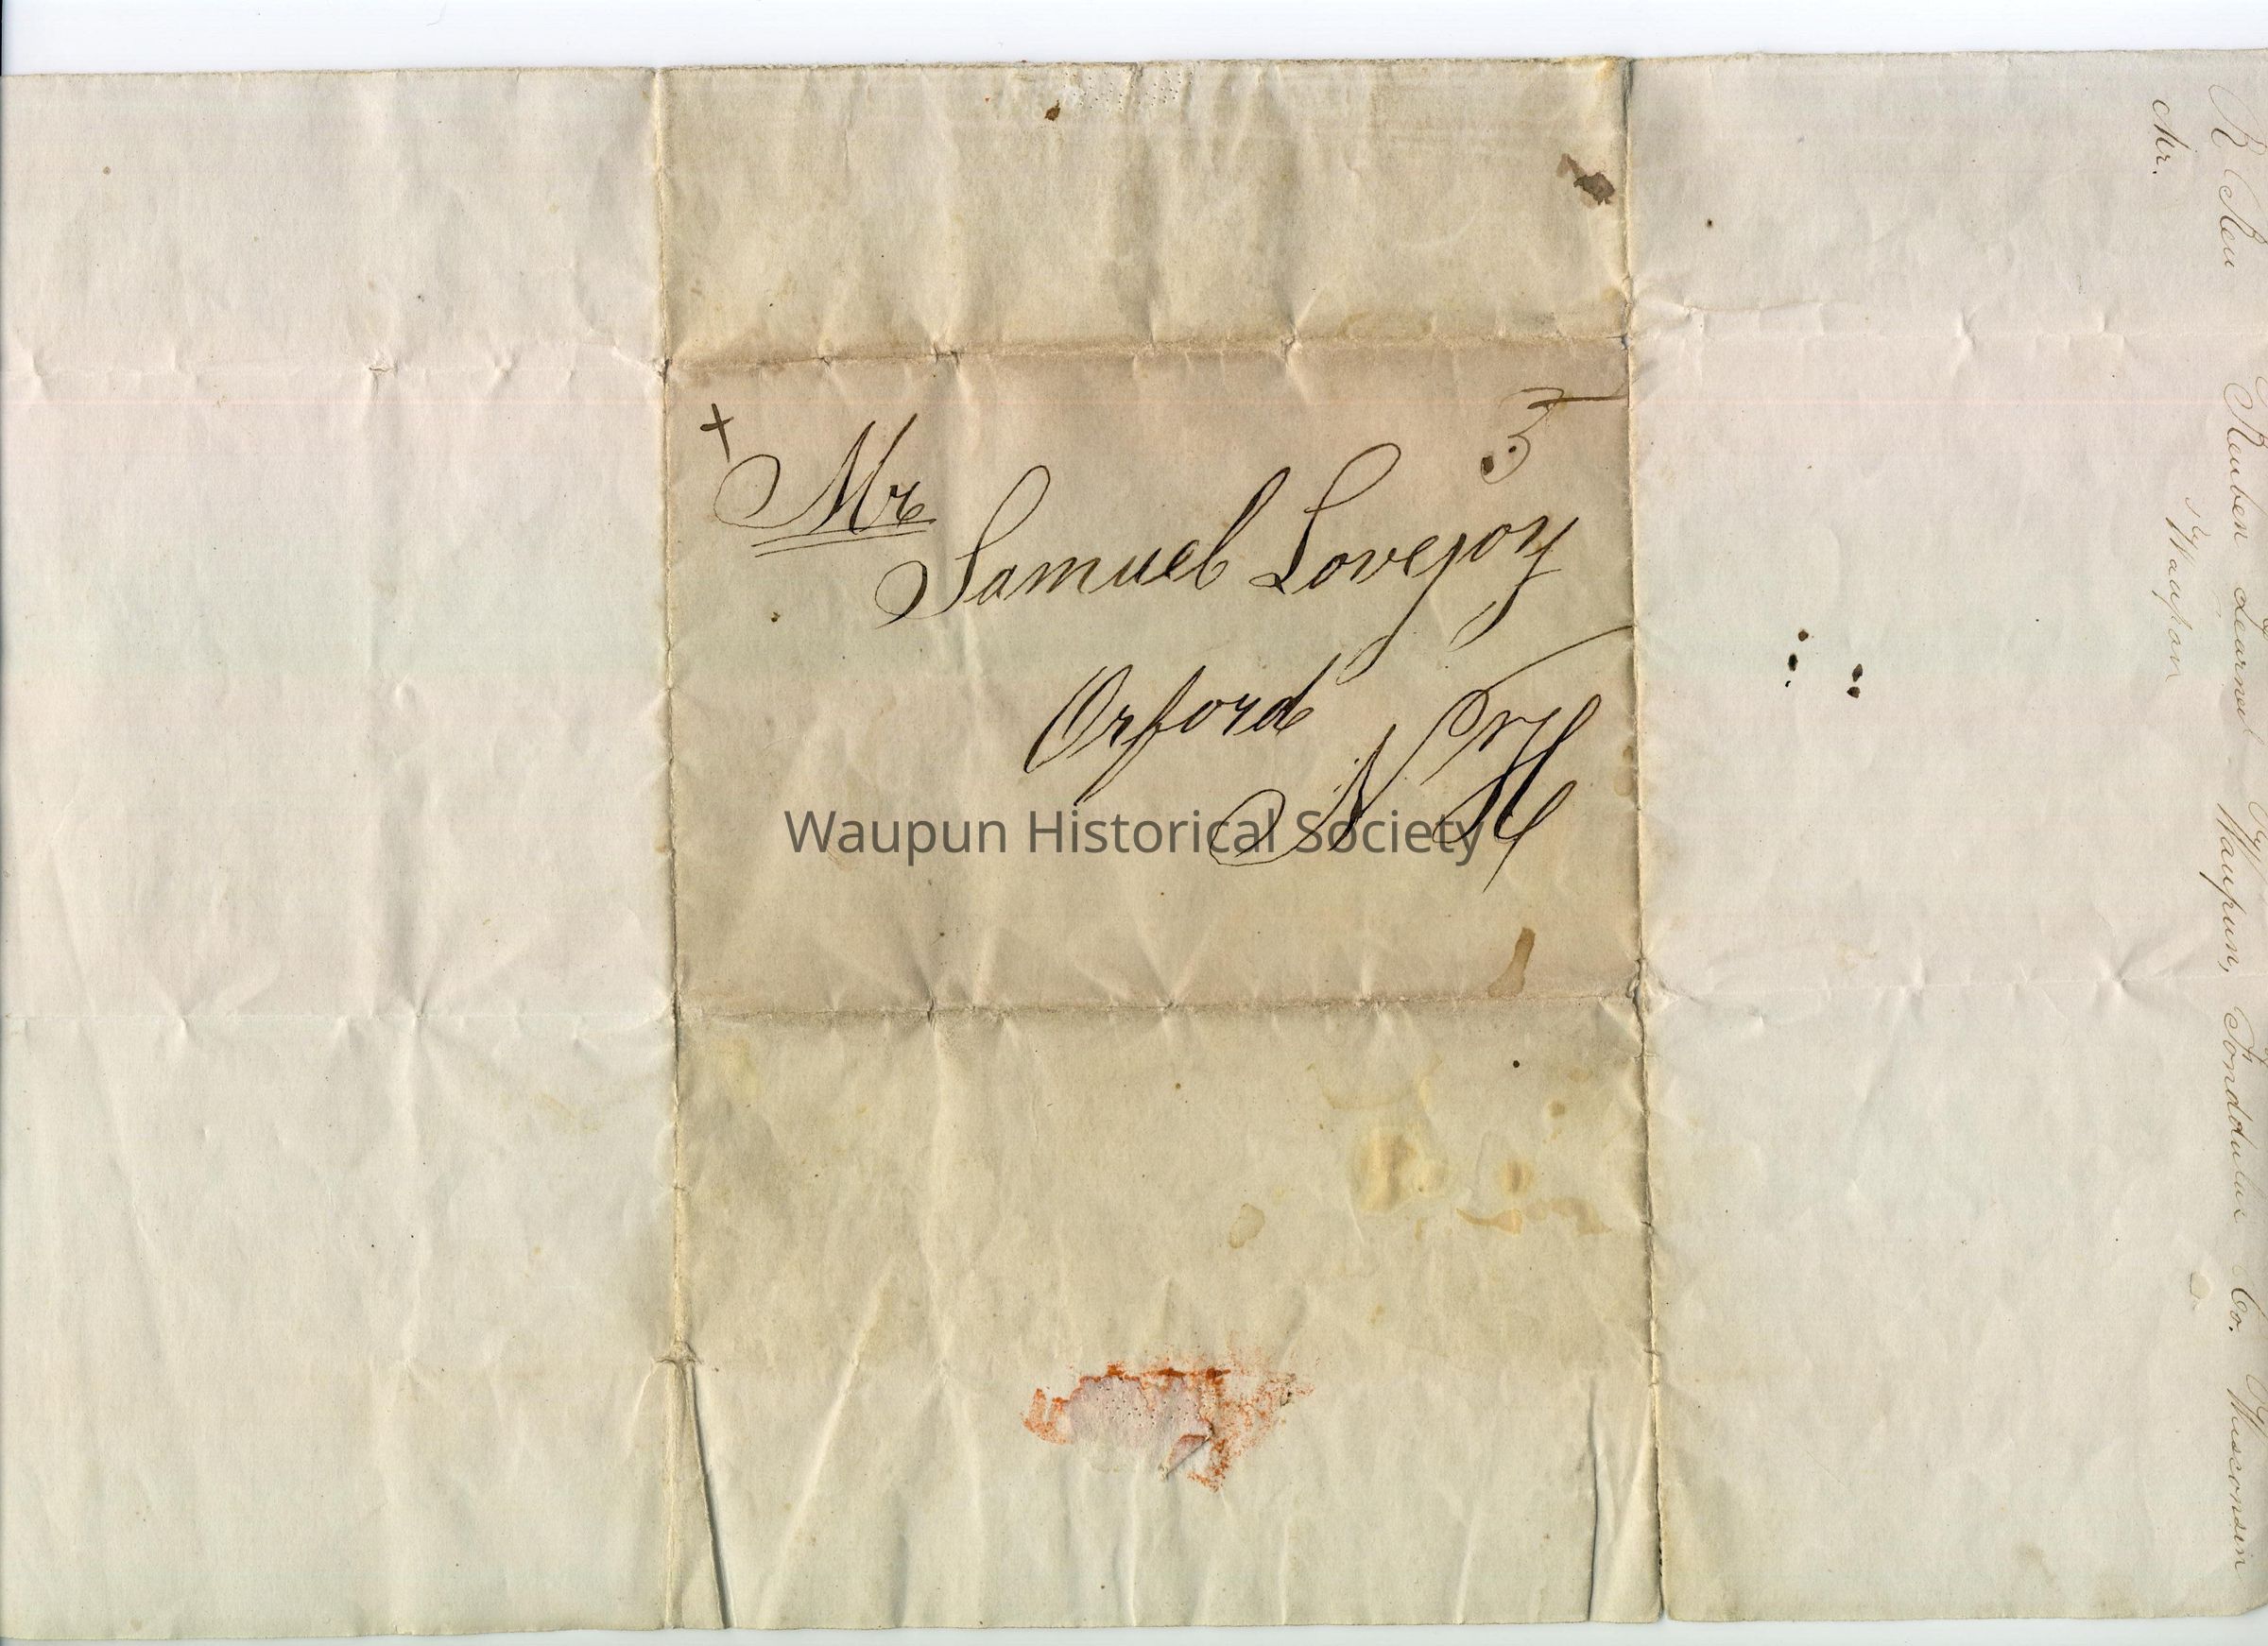 5
Mr
Samuel Lovejoy
Orford
N H
Waupun Historical Society
Reuben Learned Waupun, Fonddulac Co. Wisconsin
Mr. Waupon